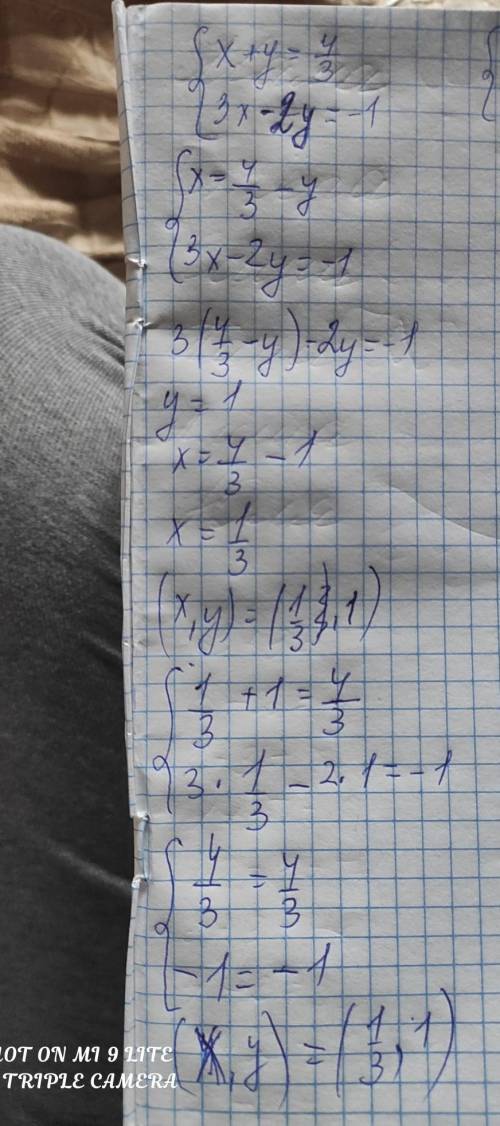 { x + y = 4/3
{ 3x - 2y = -1
{ x = 4/3 - y
{ 3x - 2y = -1
3(4/3 - y) - 2y = -1
y = 1
x = 4/3 - 1
x = 1/3
(x, y) = (1/3, 1)
{ 1/3 + 1 = 4/3
{ 3 · 1/3 - 2 · 1 = -1
{ 4/3 = 4/3
{ -1 = -1
(x, y) = (1/3, 1)
HOT ON MI 9 LITE
TRIPLE CAMERA